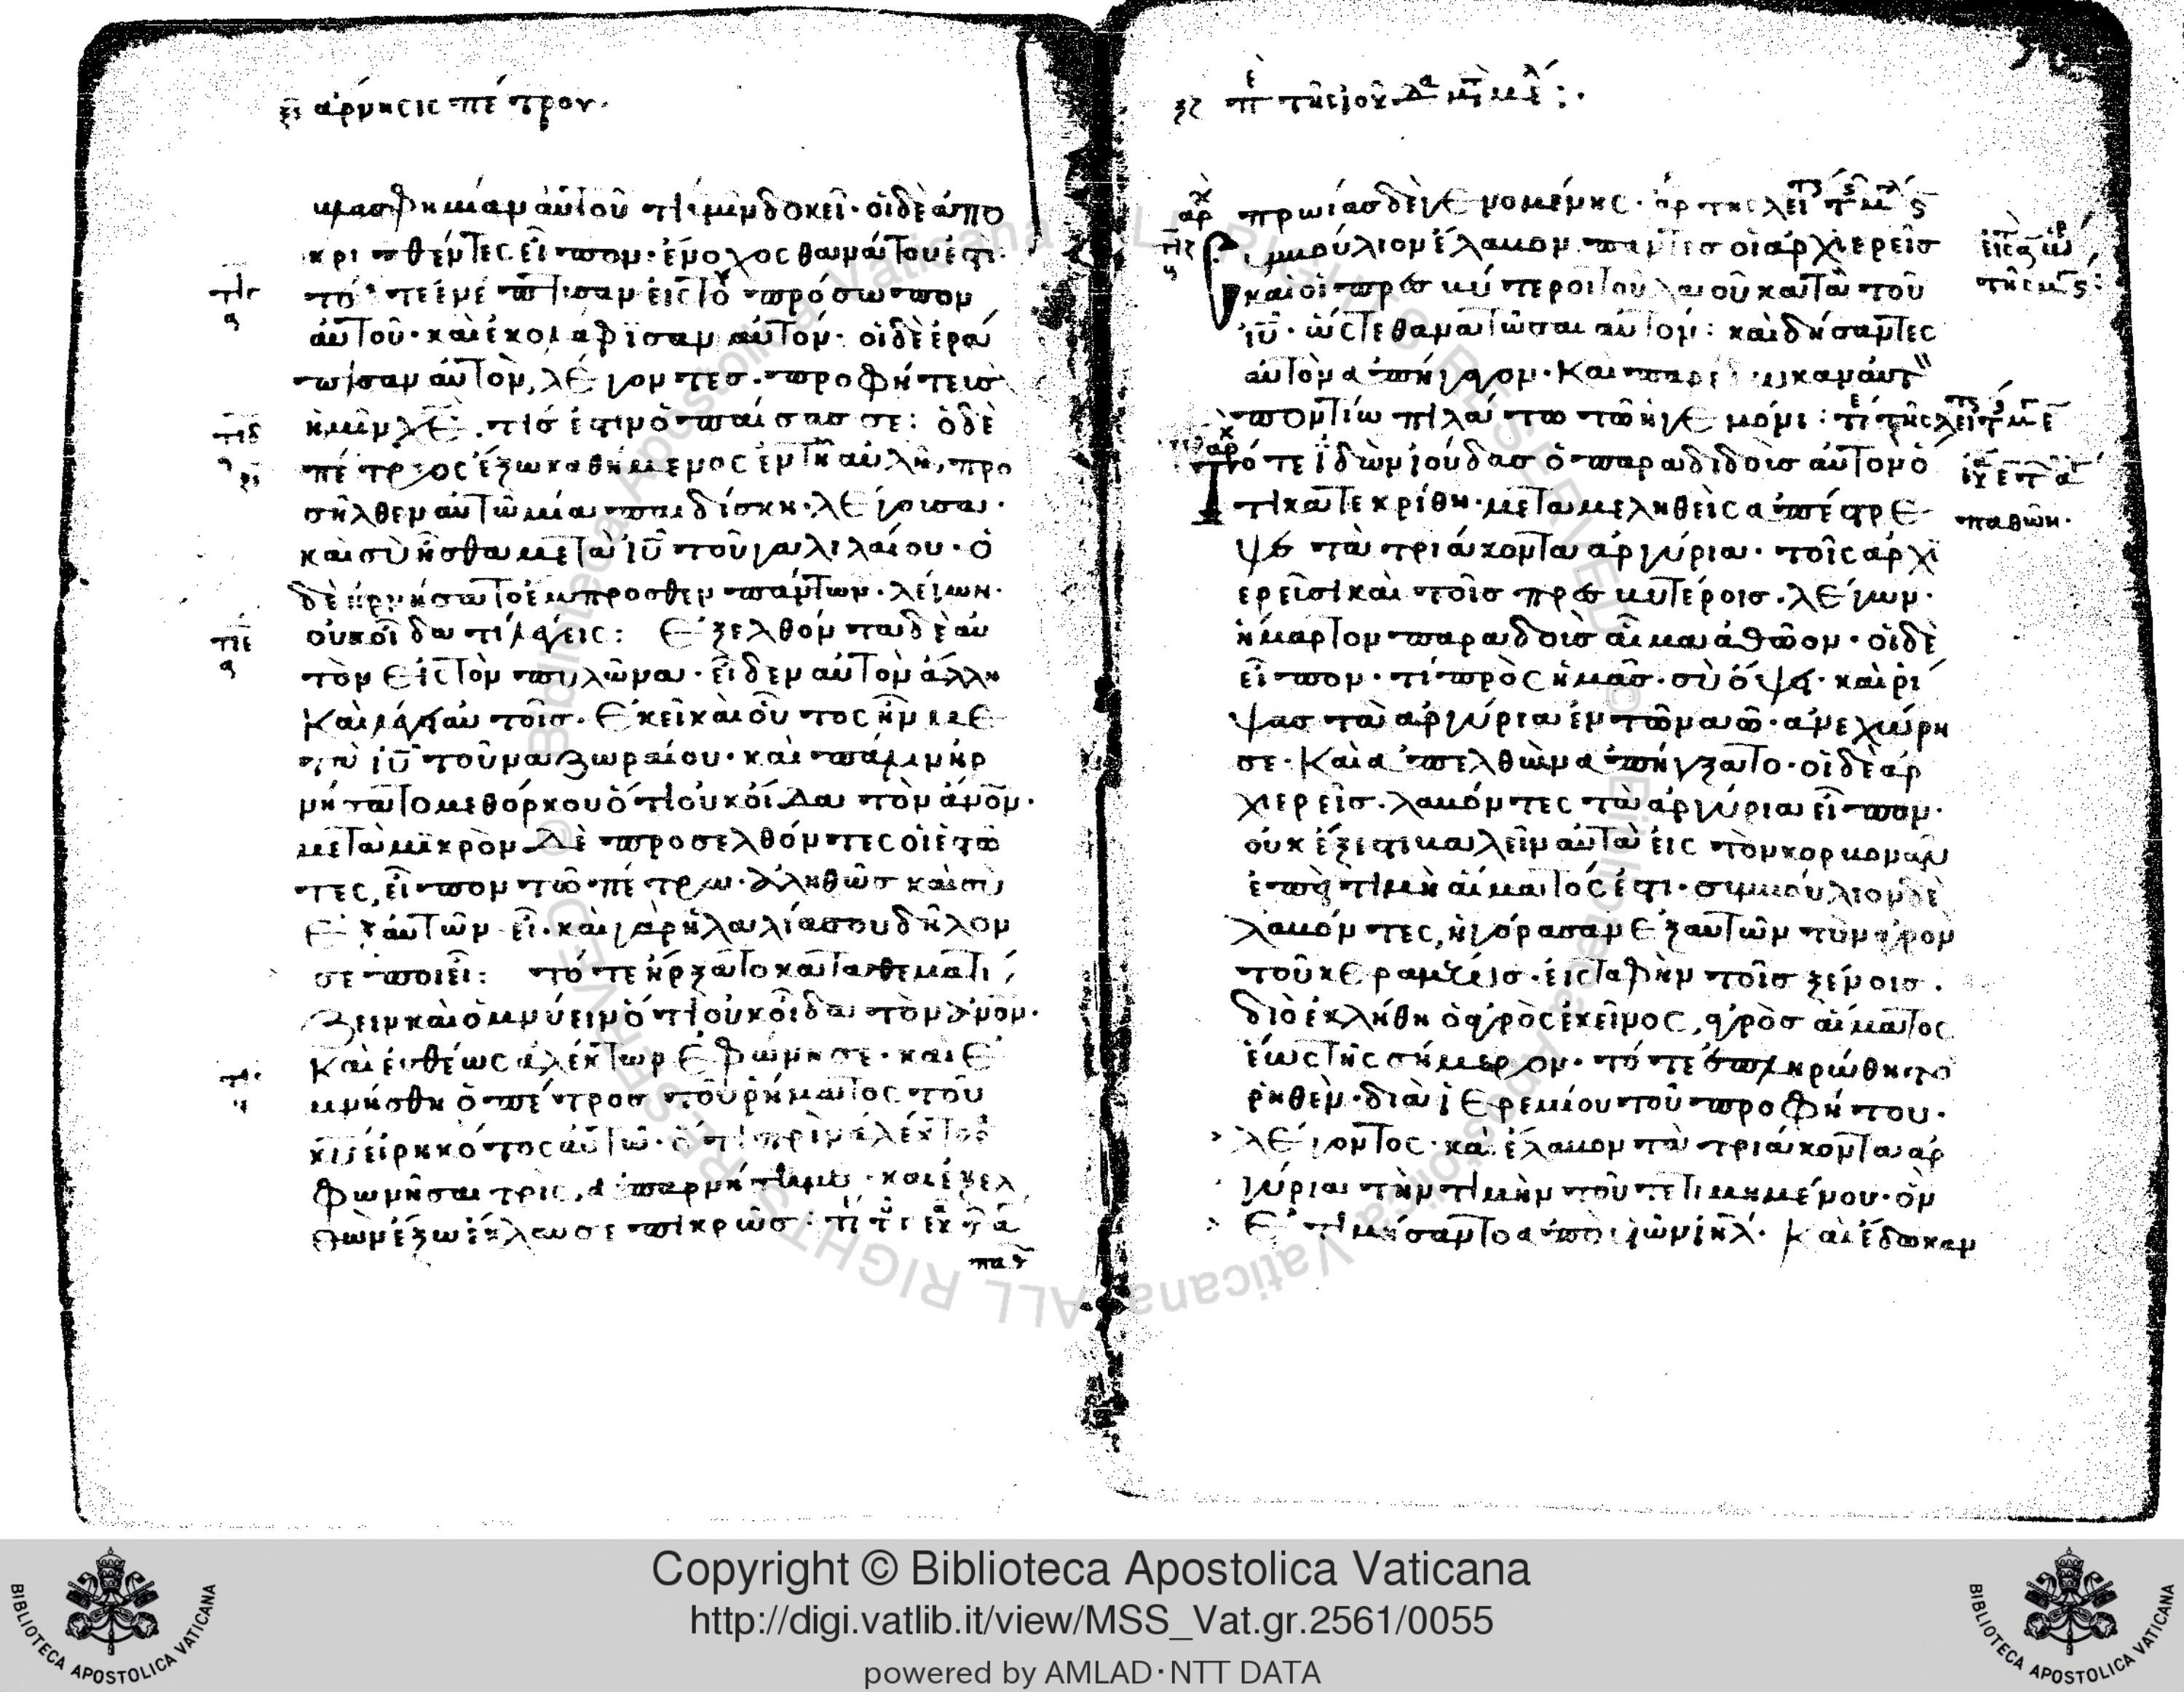 ξι αρνησις πέτρου.
μασφημίαν αὐτοῦ τί ὑμῖν δοκεῖ· οἱ δὲ ἀπο
κριθέντες εἶπον· ἔνοχος θανάτου ἐστὶ·
τότε ἐνέπτυσαν εἰς τὸ πρόσωπον
αὐτοῦ· καὶ ἐκολάφισαν αὐτόν· οἱ δὲ ἐρά
πισαν αὐτὸν, λέγοντες· προφήτευσο
ἡμῖν χε. τίς ἐστιν ὁ παίσας σε: ὁ δὲ
πέτρος ἔξω καθήμενος ἐν τῆ αὐλῆ, προ
σῆλθεν αὐτῶ μία παιδίσκη· λέγουσα·
καὶ σὺ ἦσθα μετὰ ιυ τοῦ γαλιλαίου· ὁ
δὲ ἠρνήσατο ἔμπροσθεν πάντων· λέγων·
οὐκ οἶδα τί λέγεις: Εξελθόντα δὲ αὐ
τὸν εἰς τὸν πυλῶνα· εἶδεν αὐτὸν ἄλλη
καὶ λέγει αὐτοῖς· Εκεῖ καὶ οὗτος ἦν με
τὰ ιυ τοῦ ναζωραίου· καὶ πάλιν ἠρ
νήσατο μεθ ὅρκου ὅτι οὐκ οἶδα τὸν ανον·
μετὰ μικρὸν δὲ προσελθόντες οἱ ἑστῶ
τες, εἶπον τῶ πέτρω· ἀληθῶς καὶ σὺ
Εξ αὐτῶν εἶ· καὶ γὰρ ἡ λαλιά σου δῆλον
σε ποιεῖ: τότε ἤρξατο καταθεματί
ζειν καὶ ὀμνύειν ὅτι οὐκ οἶδα τὸν ανον·
Καὶ εὐθέως ἀλέκτωρ Εφώνησε· καὶ Ε
μνήσθη ὁ πέτρος τοῦ ῥήματος τοῦ
ιυ εἰρηκότος αὐτῶ· ὅτι πρὶν ἀλέκτορ
φωνῆσαι τρὶς, ἀπαρνήση με· καὶ ἐξελ
θὼν ἔξω ἔκλαυσε πικρῶς:
πρωίας δὲ γενομένης·
συμβούλιον ἔλαβον πάντες οἱ ἀρχιερεῖς
καὶ οἱ πρεσβύτεροι τοῦ λαοῦ κατὰ τοῦ
ιυ· ὥστε θανατῶσαι αὐτόν: καὶ δήσαντες
αὐτὸν ἀπήγαγον· Καὶ παρέδωκαν αὐτὸν
ποντίω πιλάτω τῶ ἡγεμόνι:
τότε ἰδὼν ἰούδας ὁ παραδιδοὺς αὐτὸν ὅ
τι κατεκρίθη· μεταμεληθεὶς ἀπέστρε
παθῶν·
ψε τὰ τριάκοντα ἀργύρια· τοῖς ἀρχι
ερεῦσι καὶ τοῖς πρεσβυτέροις· λέγων·
ἥμαρτον παραδοὺς αἷμα ἀθῶον· οἱ δὲ
εἶπον· τί πρὸς ἡμᾶς· σὺ ὄψει· καὶ ῥί
ψας τὰ ἀργύρια ἐν τῶ ναῶ· ἀνεχώρη
σε· Καὶ ἀπελθὼν ἀπήγξατο· οἱ δὲ ἀρ
χιερεῖς· λαβόντες τὰ ἀργύρια εἶπον·
οὐκ ἔξεστι βαλεῖν αὐτὰ εἰς τὸν κορβονᾶν
ἐπεὶ τιμὴ αἵματός ἐστι· συμβούλιον δὲ
λαβόντες, ἠγόρασαν Εξ αὐτῶν τὸν ἀγρὸν
τοῦ κεραμέως· εἰς ταφὴν τοῖς ξένοις.
διὸ ἐκλήθη ὁ ἀγρὸς ἐκεῖνος, ἀγρὸς αἵματος
ἕως τῆς σήμερον· τότε ἐπληρώθη τὸ
ῥηθὲν· διὰ ἱερεμίου τοῦ προφήτου·
λέγοντος· καὶ ἔλαβον τὰ τριάκοντα ἀρ
γύρια τὴν τιμὴν τοῦ τετιμημένου· ὃν
Ετιμήσαντο ἀπὸ υἱῶν ιηλ· Καὶ ἔδωκαν
Copyright © Biblioteca Apostolica Vaticana
http://digi.vatlib.it/view/MSS_Vat.gr.2561/0055
powered by AMLAD·NTT DATA
BIBLIOTECA APOSTOLICA VATICANA
BIBLIOTECA APOSTOLICA VATICANA